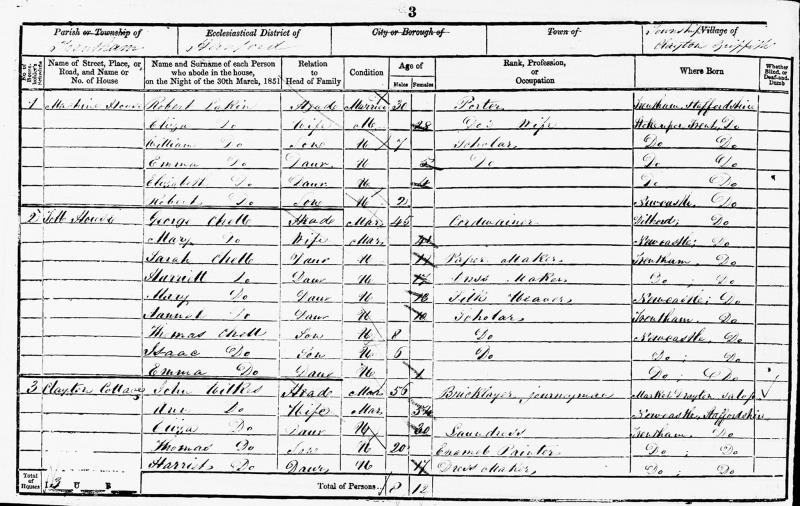 3
Parish or Township of Ecclesiastical District of City or Borough of Town of Township Village of
Trentham Clayton Griffith
No. of House-holder's Schedule Name of Street, Place, or Road, and Name or No. of House Name and Surname of each Person who abode in the house, on the Night of the 30th March, 1851 Relation to Head of Family Condition Age of Males Females Rank, Profession, or Occupation Where Born Whether Blind, or Deaf-and-Dumb
1 Machine House Robert Lakin Head Married 30 Porter Trentham, Staffordshire
Eliza Do Wife M 28 Do's Wife Stoke upon Trent, Do
William Do Son U 7 Scholar Do Do
Emma Do Daur U 5 Do Do Do
Elizabeth Do Daur U 4 Do Do
Robert Do Son U 2 Newcastle Do
2 Toll House George Chell Head Mar 45 Cordwainer Do
Mary Do Wife Mar Newcastle; Do
Sarah Chell Daur U Paper Maker Trentham, Do
Harriett Do Daur U 17 Maker Do ; Do
Mary Do Daur U 13 Silk Weaver Newcastle; Do
Hannah Do Daur U 10 Scholar Trentham, Do
Thomas Chell Son U 8 Do Newcastle, Do
Isaac Do Son U 6 Do Do ; Do
Emma Do Daur U 1 Do ; Do
3 Clayton Cottage John Wilkes Head Mar 56 Bricklayer, journeyman Market Drayton Salop
Ann Do Wife Mar Newcastle, Staffordshire
Eliza Do Daur U 20 Laundress Trentham, Do
Thomas Do Son U 20 Enamel Painter Do ; Do
Harriet Do Daur U 17 Dress Maker Do ; Do
Total of Houses I 3 U B Total of Persons 8 12